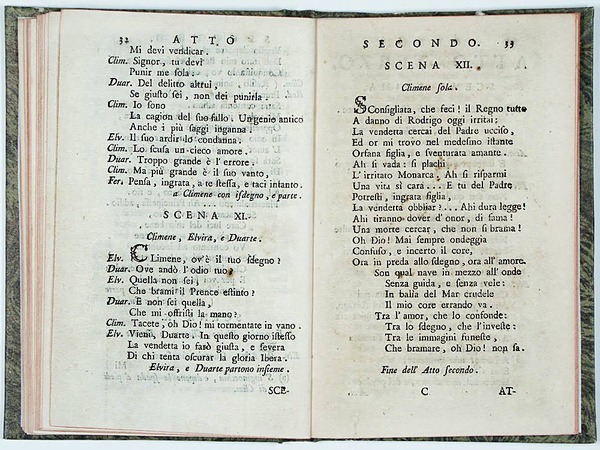 32 ATTO
Mi devi vendicar.
Clim. Signor, tu devi
Punir me sola.
Duar. Del delitto altrui,
Se giusto sei, non dei punirla.
Clim. Io sono
La cagion del suo fallo. Un genio antico
Anche i più saggi inganna.
Elv. Il suo ardir lo condanna.
Clim. Lo scusa un cieco amore.
Duar. Troppo grande è l'errore.
Clim. Ma più grande è il suo vanto.
Fer. Pensa, ingrata, a te stessa, e taci intanto.
a Climene con isdegno, e parte.
SCENA XI.
Climene, Elvira, e Duarte.
Elv. CLimene, ov'è il tuo sdegno?
Duar. Ove andò l'odio tuo?
Elv. Quella non sei,
Che brami il Prence estinto?
Duar. E non sei quella,
Che mi offristi la mano?
Clim. Tacete, oh Dio! mi tormentate in vano.
Elv. Vieni, Duarte. In questo giorno istesso
La vendetta io farò giusta, e severa
Di chi tenta oscurar la gloria Ibera.
Elvira, e Duarte partono insieme.
SCE-
SECONDO. 33
SCENA XII.
Climene sola.
SConsigliata, che feci! il Regno tutto
A danno di Rodrigo oggi irritai;
La vendetta cercai del Padre ucciso,
Ed or mi trovo nel medesimo istante
Orfana figlia, e sventurata amante.
Ah si vada: si plachi
L'irritato Monarca. Ah si risparmi
Una vita sì cara... E tu del Padre
Potresti, ingrata figlia,
La vendetta obbliar?... Ahi dura legge!
Ahi tiranno dover d'onor, di fama!
Una morte cercar, che non si brama!
Oh Dio! Mai sempre ondeggia
Confuso, e incerto il core,
Ora in preda allo sdegno, ora all'amore.
Son qual nave in mezzo all'onde
Senza guida, e senza vele:
In balìa del Mar crudele
Il mio core errando va.
Tra l'amor, che lo confonde:
Tra lo sdegno, che l'investe:
Tra le immagini funeste,
Che bramare, oh Dio! non sa.
Fine dell' Atto secondo.
C AT-